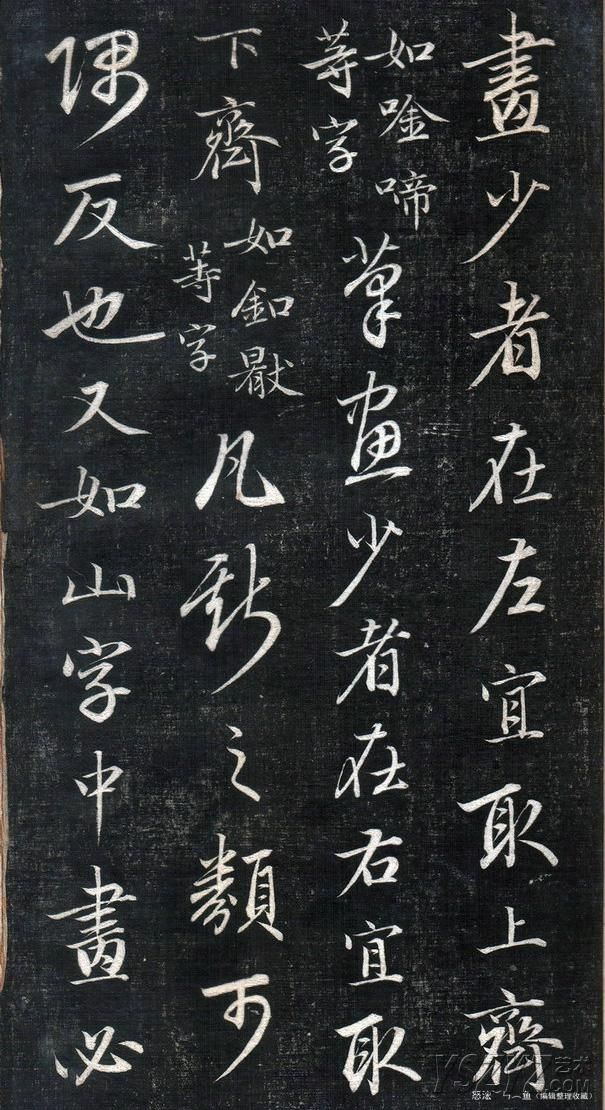 畫少者在左宜取上齊
如唫啼
等字
筆畫少者在右宜取
下齊
如釦
等字
凡斯之類可
隅反也又如山字中畫必
YSZW艺术
（编辑整理收藏）